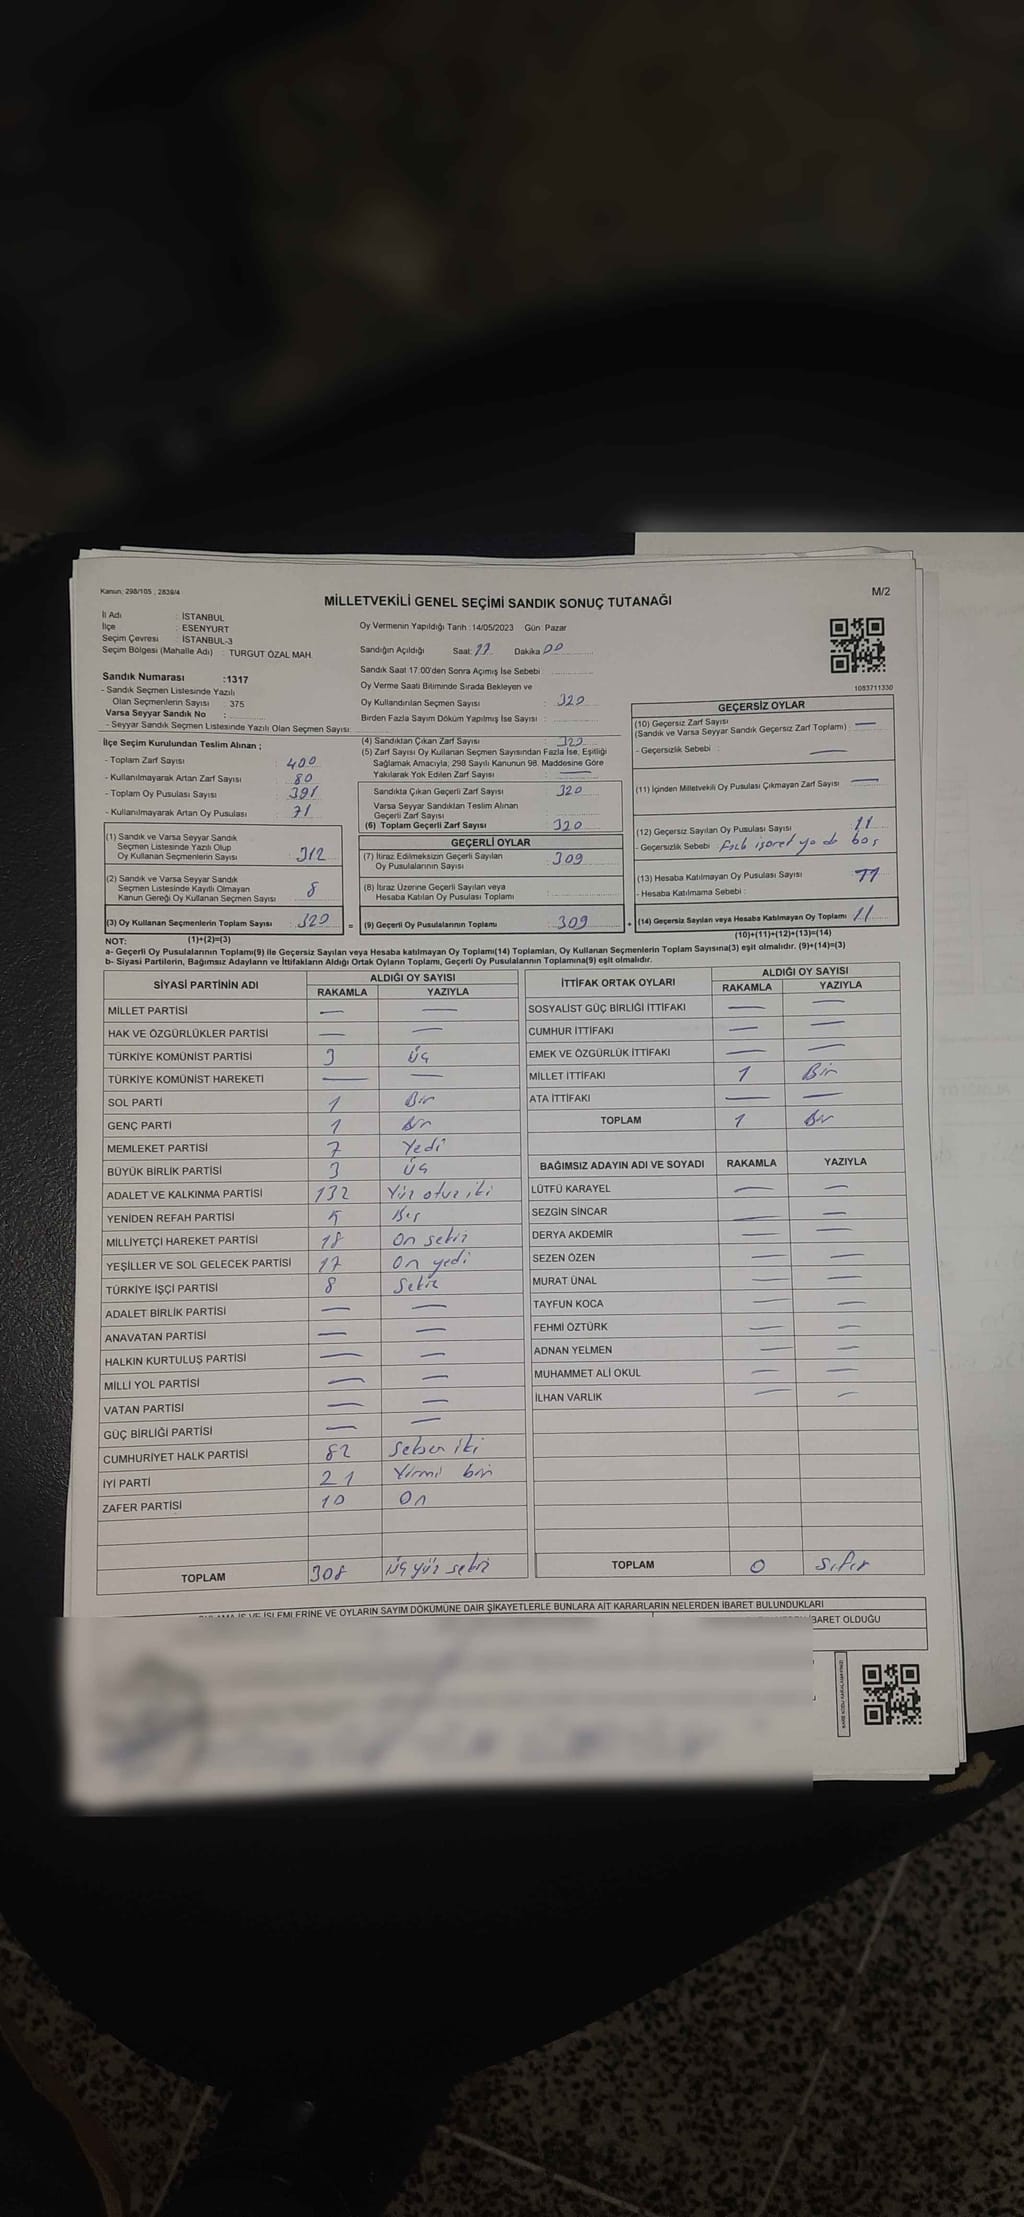 Kanun: 298/105 , 2839/4
M/2
MİLLETVEKİLİ GENEL SEÇİMİ SANDIK SONUÇ TUTANAĞI
İl Adı : İSTANBUL
İlçe : ESENYURT
Seçim Çevresi : İSTANBUL-3
Seçim Bölgesi (Mahalle Adı) : TURGUT ÖZAL MAH.
Sandık Numarası :1317
- Sandık Seçmen Listesinde Yazılı
Olan Seçmenlerin Sayısı : 375
Varsa Seyyar Sandık No :
- Seyyar Sandık Seçmen Listesinde Yazılı Olan Seçmen Sayısı:
Oy Vermenin Yapıldığı Tarih :14/05/2023 Gün: Pazar
Sandığın Açıldığı Saat: 17 Dakika 00
Sandık Saat 17:00'den Sonra Açımış İse Sebebi :
Oy Verme Saati Bitiminde Sırada Bekleyen ve
Oy Kullandırılan Seçmen Sayısı : 320
Birden Fazla Sayım Döküm Yapılmış İse Sayısı :
1083711330
İlçe Seçim Kurulundan Teslim Alınan ;
- Toplam Zarf Sayısı : 400
- Kullanılmayarak Artan Zarf Sayısı : 80
- Toplam Oy Pusulası Sayısı : 391
- Kullanılmayarak Artan Oy Pusulası : 71
(1) Sandık ve Varsa Seyyar Sandık
Seçmen Listesinde Yazılı Olup
Oy Kullanan Seçmenlerin Sayısı : 312
(2) Sandık ve Varsa Seyyar Sandık
Seçmen Listesinde Kayıtlı Olmayan
Kanun Gereği Oy Kullanan Seçmen Sayısı : 8
(3) Oy Kullanan Seçmenlerin Toplam Sayısı : 320
(1)+(2)=(3)
(4) Sandıktan Çıkan Zarf Sayısı : 320
(5) Zarf Sayısı Oy Kullanan Seçmen Sayısından Fazla İse, Eşitliği
Sağlamak Amacıyla; 298 Sayılı Kanunun 98. Maddesine Göre
Yakılarak Yok Edilen Zarf Sayısı : —
Sandıkta Çıkan Geçerli Zarf Sayısı : 320
Varsa Seyyar Sandıktan Teslim Alınan
Geçerli Zarf Sayısı :
(6) Toplam Geçerli Zarf Sayısı : 320
GEÇERLİ OYLAR
(7) İtiraz Edilmeksizin Geçerli Sayılan
Oy Pusulalarının Sayısı : 309
(8) İtiraz Üzerine Geçerli Sayılan veya
Hesaba Katılan Oy Pusulası Toplamı :
= (9) Geçerli Oy Pusulalarının Toplamı : 309 +
GEÇERSİZ OYLAR
(10) Geçersiz Zarf Sayısı : —
(Sandık ve Varsa Seyyar Sandık Geçersiz Zarf Toplamı)
- Geçersizlik Sebebi : —
(11) İçinden Milletvekili Oy Pusulası Çıkmayan Zarf Sayısı : —
(12) Geçersiz Sayılan Oy Pusulası Sayısı : 11
- Geçersizlik Sebebi : Fazla işaret ya da boş
(13) Hesaba Katılmayan Oy Pusulası Sayısı : 11
- Hesaba Katılmama Sebebi :
(14) Geçersiz Sayılan veya Hesaba Katılmayan Oy Toplamı : 11
(10)+(11)+(12)+(13)=(14)
NOT:
a- Geçerli Oy Pusulalarının Toplamı(9) ile Geçersiz Sayılan veya Hesaba katılmayan Oy Toplamı(14) Toplamları, Oy Kullanan Seçmenlerin Toplam Sayısına(3) eşit olmalıdır. (9)+(14)=(3)
b- Siyasi Partilerin, Bağımsız Adayların ve İttifakların Aldığı Ortak Oyların Toplamı, Geçerli Oy Pusulalarının Toplamına(9) eşit olmalıdır.
SİYASİ PARTİNİN ADI ALDIĞI OY SAYISI
RAKAMLA YAZIYLA
MİLLET PARTİSİ — —
HAK VE ÖZGÜRLÜKLER PARTİSİ — —
TÜRKİYE KOMÜNİST PARTİSİ 3 Üç
TÜRKİYE KOMÜNİST HAREKETİ — —
SOL PARTİ 1 Bir
GENÇ PARTİ 1 Bir
MEMLEKET PARTİSİ 7 Yedi
BÜYÜK BİRLİK PARTİSİ 3 Üç
ADALET VE KALKINMA PARTİSİ 132 Yüz otuz iki
YENİDEN REFAH PARTİSİ 5 Beş
MİLLİYETÇİ HAREKET PARTİSİ 18 On sekiz
YEŞİLLER VE SOL GELECEK PARTİSİ 17 On yedi
TÜRKİYE İŞÇİ PARTİSİ 8 Sekiz
ADALET BİRLİK PARTİSİ — —
ANAVATAN PARTİSİ — —
HALKIN KURTULUŞ PARTİSİ — —
MİLLİ YOL PARTİSİ — —
VATAN PARTİSİ — —
GÜÇ BİRLİĞİ PARTİSİ — —
CUMHURİYET HALK PARTİSİ 82 Seksen iki
İYİ PARTİ 21 Yirmi bir
ZAFER PARTİSİ 10 On
TOPLAM 308 Üç yüz sekiz
İTTİFAK ORTAK OYLARI ALDIĞI OY SAYISI
RAKAMLA YAZIYLA
SOSYALİST GÜÇ BİRLİĞİ İTTİFAKI — —
CUMHUR İTTİFAKI — —
EMEK VE ÖZGÜRLÜK İTTİFAKI — —
MİLLET İTTİFAKI 1 Bir
ATA İTTİFAKI — —
TOPLAM 1 Bir
BAĞIMSIZ ADAYIN ADI VE SOYADI RAKAMLA YAZIYLA
LÜTFÜ KARAYEL — —
SEZGİN SİNCAR — —
DERYA AKDEMİR — —
SEZEN ÖZEN — —
MURAT ÜNAL — —
TAYFUN KOCA — —
FEHMİ ÖZTÜRK — —
ADNAN YELMEN — —
MUHAMMET ALİ OKUL — —
İLHAN VARLIK — —
TOPLAM 0 Sıfır
İŞLEMLERİNE VE OYLARIN SAYIM DÖKÜMÜNE DAİR ŞİKAYETLERLE BUNLARA AİT KARARLARIN NELERDEN İBARET BULUNDUKLARI
İBARET OLDUĞU